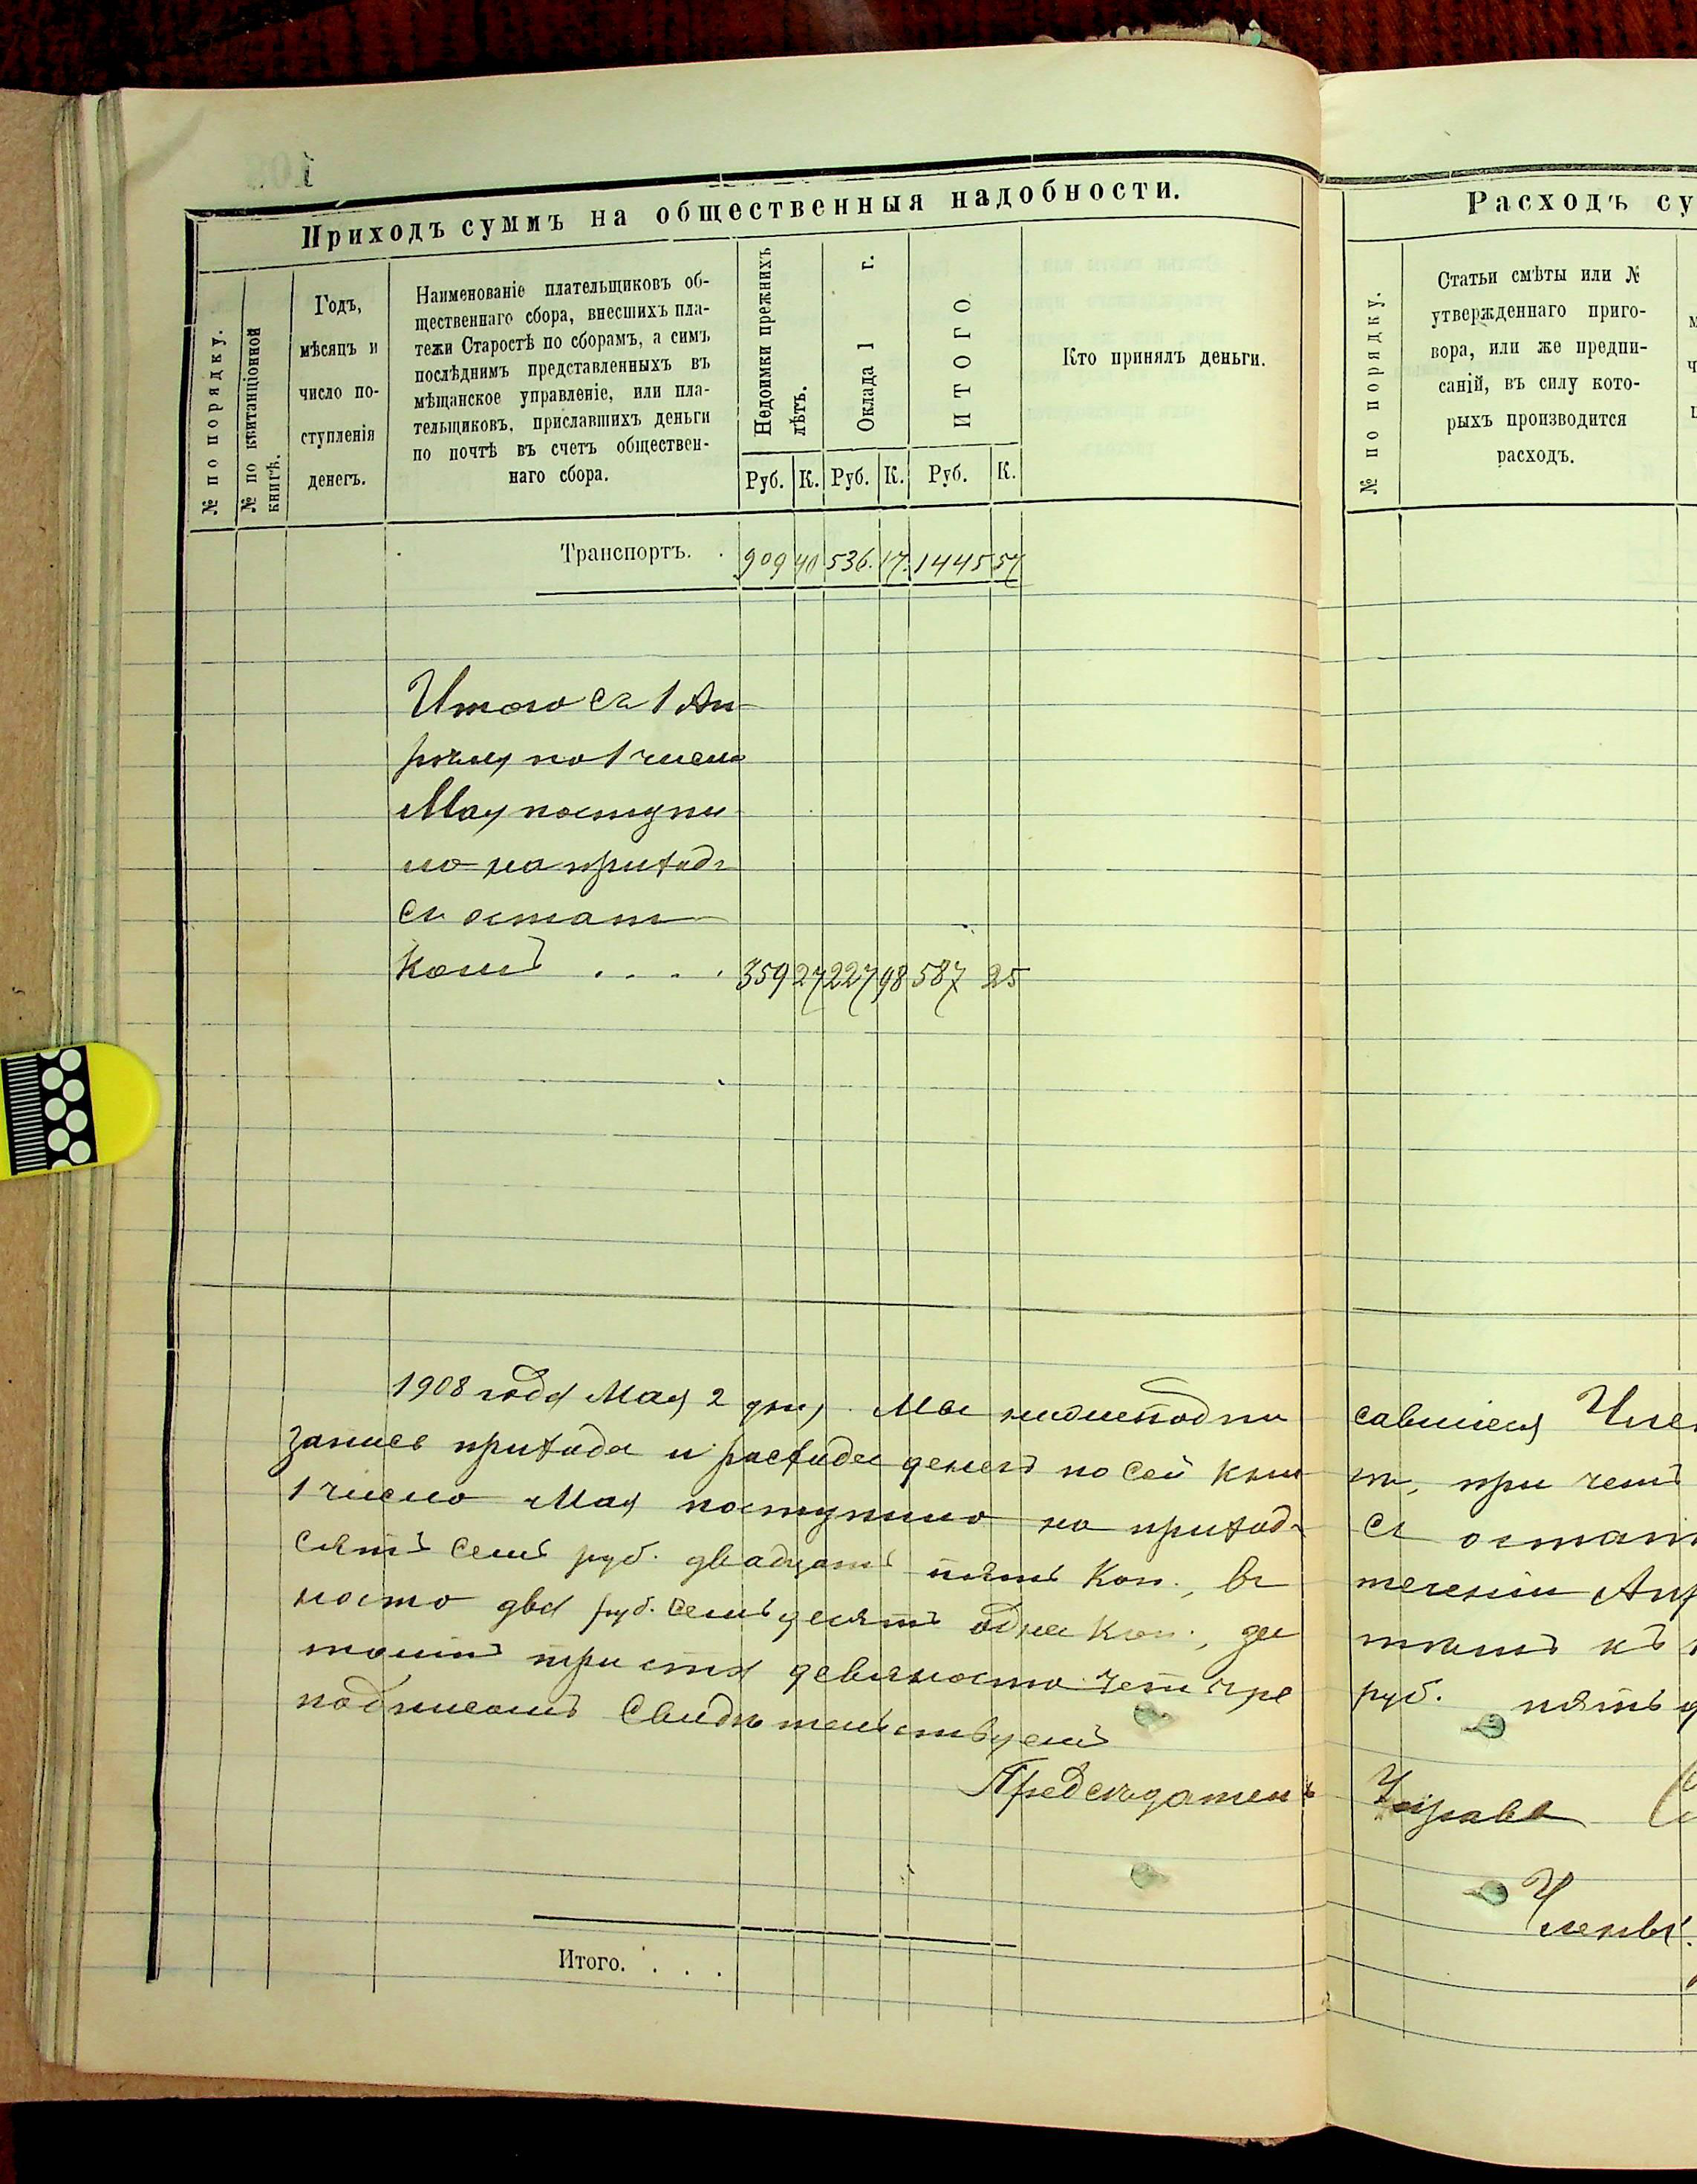 Приходъ суммъ на общественныя надобности.
№ по порядку.
№ по квитанціонной
книгѣ.
Годъ,
мѣсяцъ и
число по-
ступленія
денегъ.
Наименованіе плательщиковъ об-
щественнаго сбора, внесшихъ пла-
тежи Старостѣ по сборамъ, а симъ
послѣднимъ представленныхъ въ
мѣщанское управленіе, или пла-
тельщиковъ, приславшихъ деньги
по почтѣ въ счетъ обществен-
наго сбора.
Недоимки прежнихъ
лѣтъ.
Оклада 1 г.
ИТОГО
Руб. К. Руб. К. Руб. К.
Кто принялъ деньги.
Транспортъ. . 909 40 536. 17. 1445 57
Итого съ 1 Ап-
рѣля по 1 число
Мая поступи
ло на приходъ
съ остат
комъ . . . . 359 27 227 98 587 25
1908 года Мая 2 дня, Мы нижеподпи
запись прихода и расхода денегъ по сей кни
1 число Мая поступило на приходъ
сятъ семь руб. двадцать пять коп., въ
носто два руб. семьдесятъ одна коп., за
тоитъ триста девяносто четыре
подписомъ свидѣтельствуемъ
Предсѣдатель
Итого. . . .
Расходъ су
№ по порядку.
Статьи смѣты или №
утвержденнаго приго-
вора, или же предпи-
саній, въ силу кото-
рыхъ производится
расходъ.
савшіеся Член
гѣ, при чемъ
съ остат
теченіи Апр
тѣмъ къ
руб. пять
Управы
Члены: